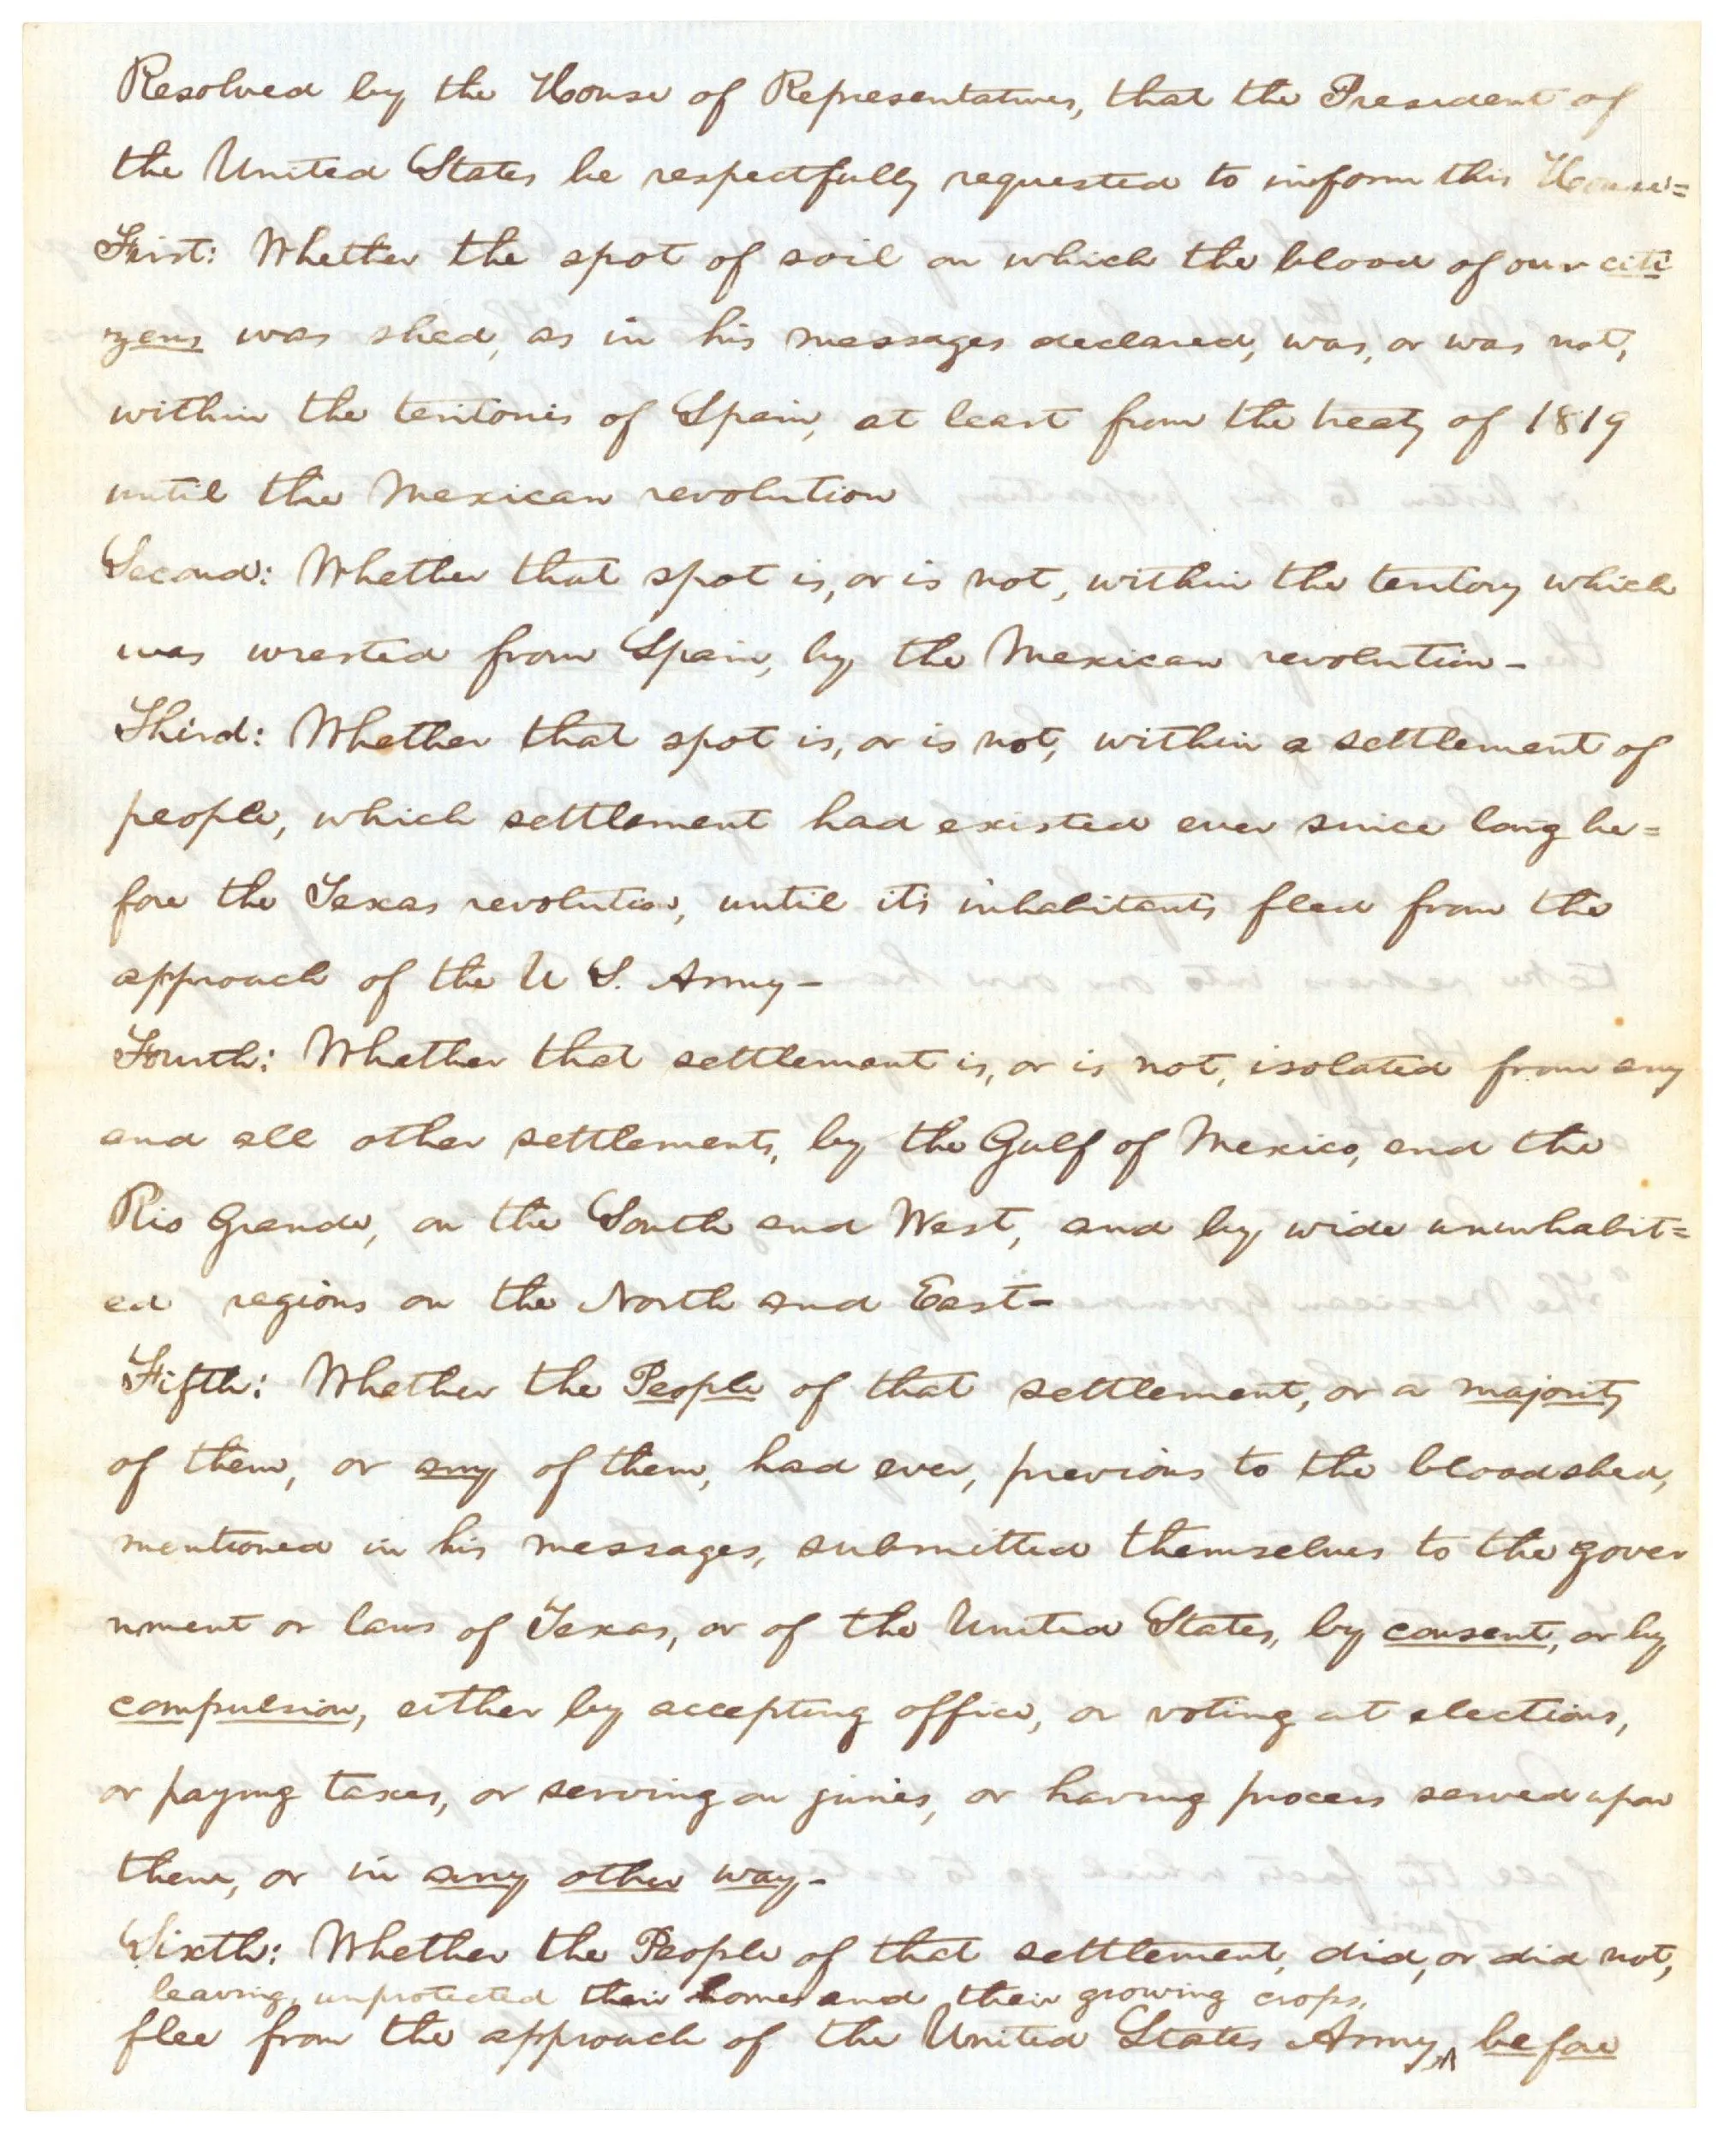 Resolved by the House of Representatives, that the President of
the United States be respectfully requested to inform this House=
First: Whether the spot of soil on which the blood of our citi
zens was shed, as in his messages declared, was, or was not,
within the teritories of Spain, at least from the treaty of 1819
until the Mexican revolution
Second: Whether that spot is, or is not, within the teritory which
was wrested from Spain, by the Mexican revolution-
Third: Whether that spot is, or is not, within a settlement of
people, which settlement had existed ever since long be=
fore the Texas revolution, until its inhabitants fled from the
approach of the U S. Army-
Fourth: Whether that settlement is, or is not, isolated from any
and all other settlements, by the Gulf of Mexico, and the
Rio Grande, on the South and West, and by wide uninhabit=
ed regions on the North and East-
Fifth: Whether the People of that settlement, or a majority
of them, or any of them, had ever, previous to the bloodshed,
mentioned in his messages, submitted themselves to the gover
nment or laws of Texas, or of the United States, by consent, or by
compulsion, either by accepting office, or voting at elections,
or paying taxes, or serving on juries, or having process served upon
them, or in any other way-
Sixth: Whether the People of that settlement, did, or did not,
leaving unprotected their homes and their growing crops,
flee from the approach of the United States Army, ^ before